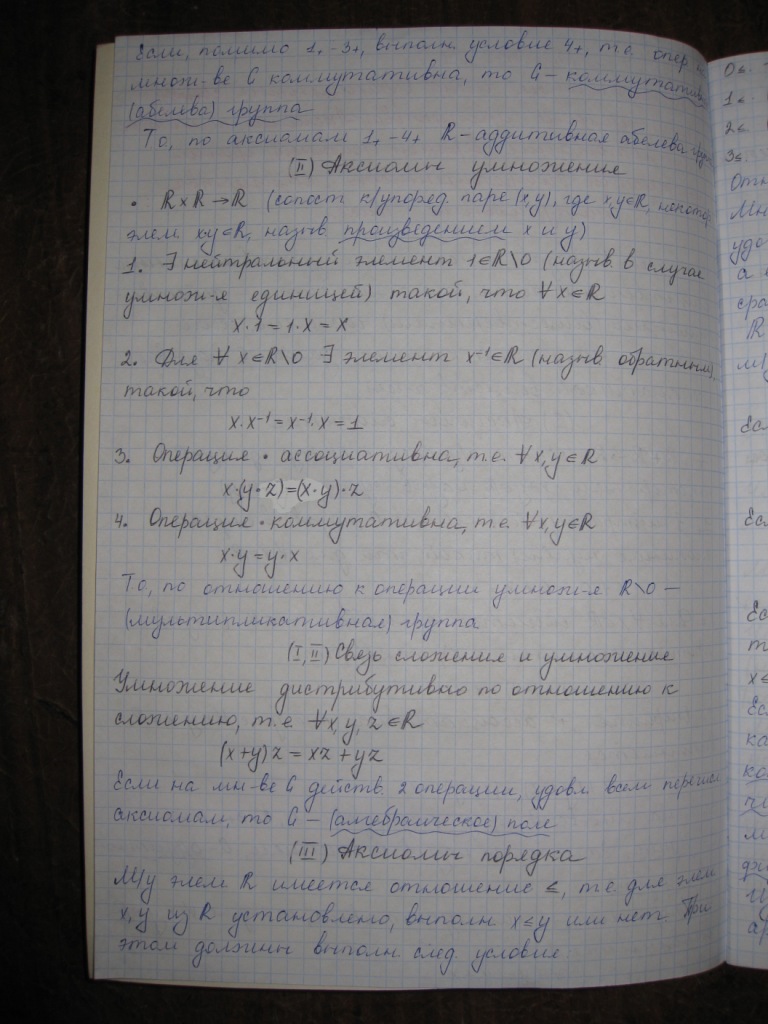 Если, помимо 1₊-3₊, выполн. условие 4₊, т.е. опер. на
множ-ве G коммутативна, то G – коммутативн.
(абелева) группа
То, по аксиомам 1₊-4₊ R – аддитивная абелева группа
(II) Аксиомы умножения
• R×R→R (сопост. к/упоряд. паре (x,y), где x,y∈R, некотор.
элем. x·y∈R, назыв. произведением x и y)
1. ∃ нейтральный элемент 1∈R\0 (назыв. в случае
умнож-я единицей) такой, что ∀x∈R
x·1=1·x=x
2. Для ∀ x∈R\0 ∃ элемент x⁻¹∈R (назыв. обратным),
такой, что
x·x⁻¹=x⁻¹·x=1
3. Операция • ассоциативна, т.е. ∀x,y∈R
x·(y·z)=(x·y)·z
4. Операция • коммутативна, т.е. ∀x,y∈R
x·y=y·x
То, по отношению к операции умнож-я R\0 –
(мультипликативная) группа
(I,II) Связь сложения и умножения
Умножение дистрибутивно по отношению к
сложению, т.е. ∀x,y,z∈R
(x+y)z=xz+yz
Если на мн-ве G действ. 2 операции, удовл. всем перечисл.
аксиомам, то G – (алгебраическое) поле
(III) Аксиомы порядка
М/у элем. R имеется отношение ≤, т.е. для элем.
x,y из R установлено, выполн. x≤y или нет. При
этом должны выполн. след. условие
0≤
1≤
2≤
3≤
Отн
Мн
удо
а
сра
R
м/у
Есл
Есл
Есл
т
x≤
Есл
ка
ко
чи
м
ар